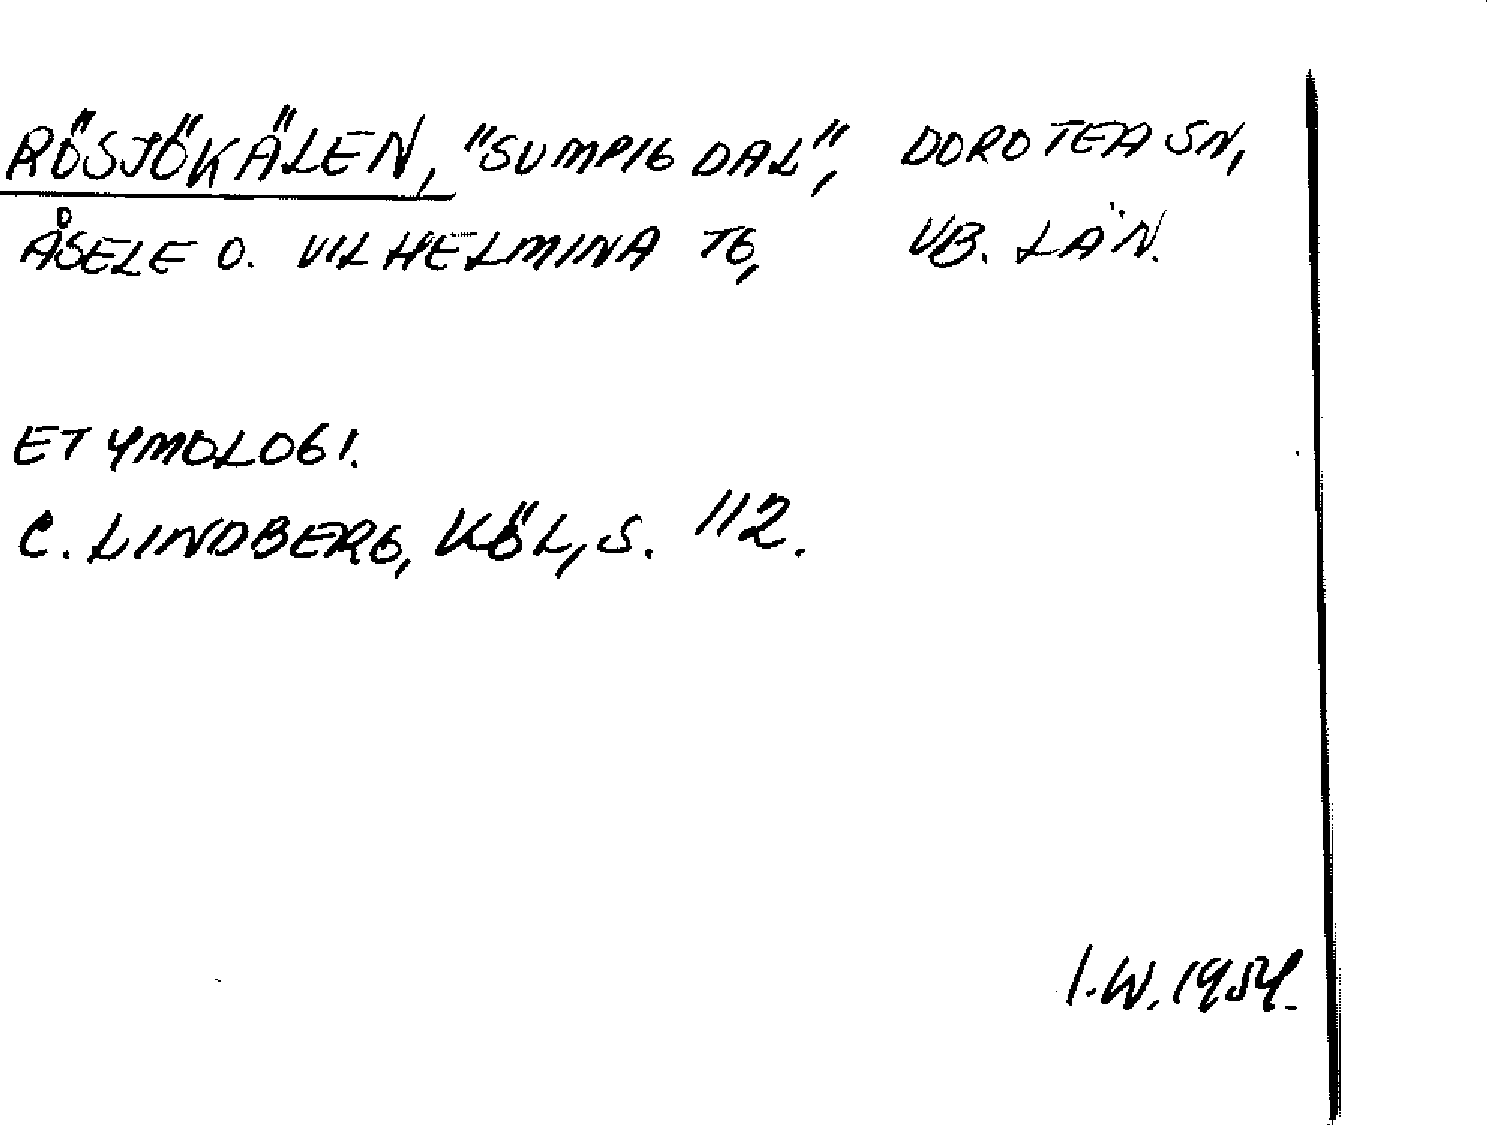 RÖSJÖKÄLEN, "SUMPIG DAL", DOROTEA SN,
ÅSELE O. VILHELMINA TG, VB. LÄN.
ETYMOLOGI.
C. LINDBERG, KÖL, S. 112.
I.W. 1954.